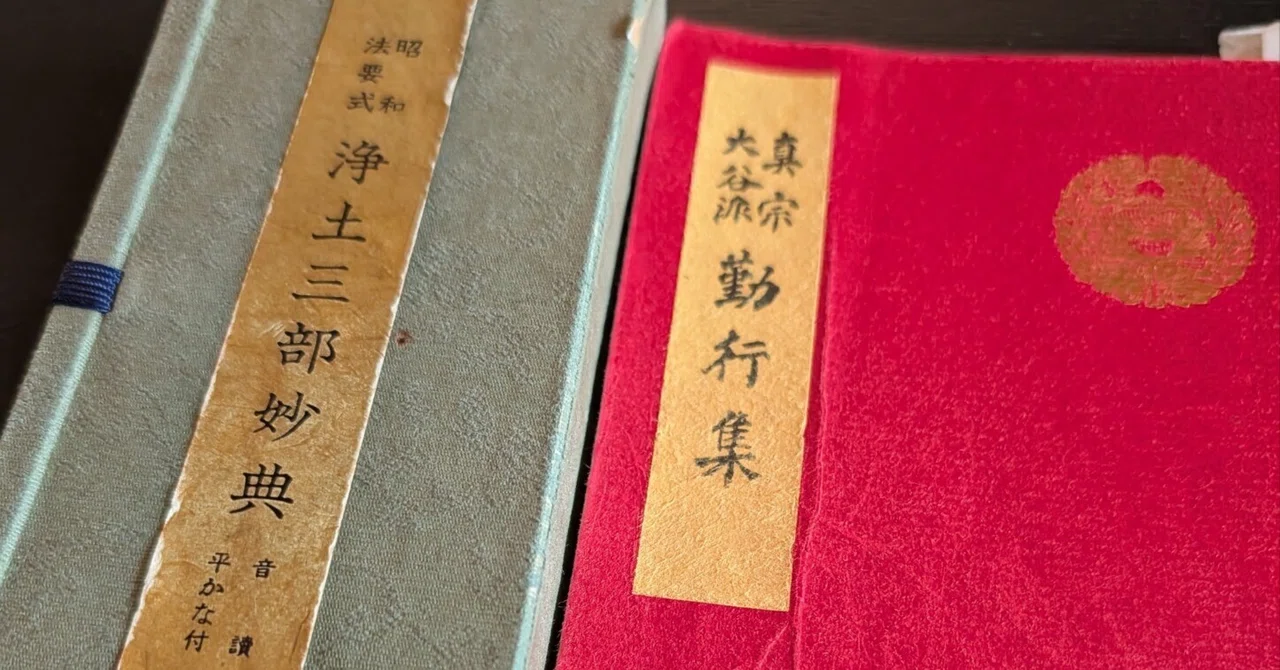 昭和
法要式
浄土三部妙典
音讀
平かな付
真宗
大谷派
勤行集